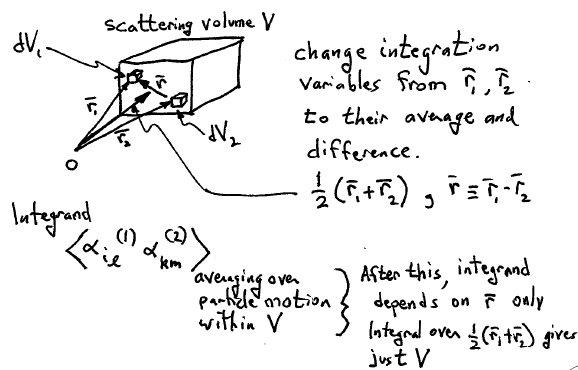 scattering volume V
dV₁
r̄₁
r̄
r̄₂
dV₂
O
change integration
variables from r̄₁, r̄₂
to their average and
difference.
½(r̄₁+r̄₂) , r̄ ≡ r̄₁-r̄₂
Integrand
⟨α_{iℓ}^{(1)} α_{km}^{(2)}⟩
averaging over
particle motion
within V
After this, integrand
depends on r̄ only
Integral over ½(r̄₁+r̄₂) gives
just V